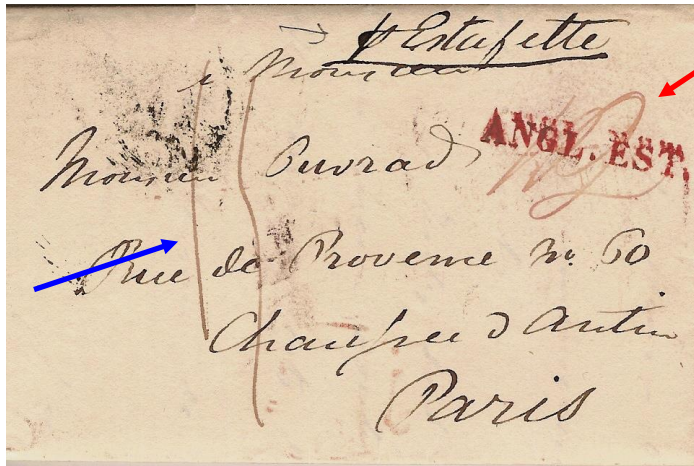 p Estafette
a Monsieur
ANGL. EST.
Monsieur Ouvrad
Rue de Provence No. 60
Chaussee d Antin
Paris